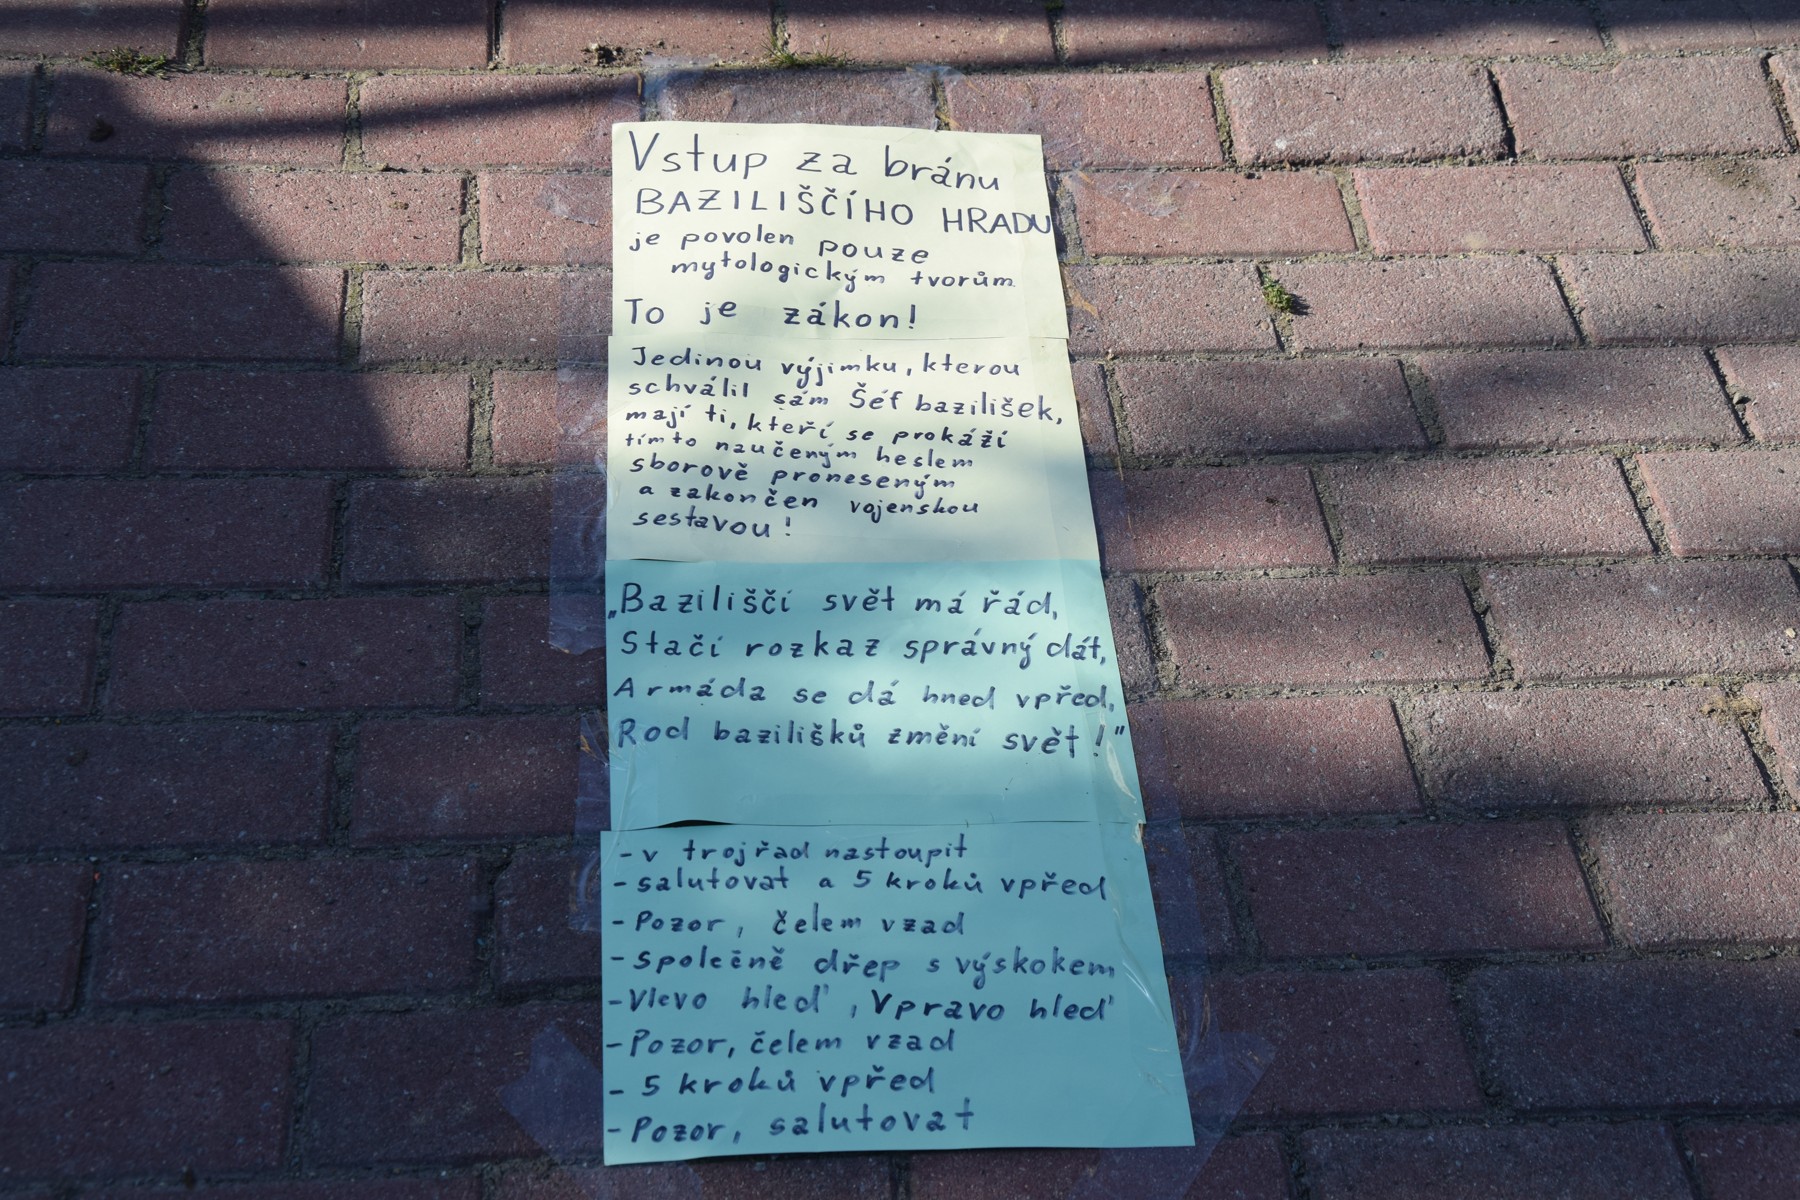 Vstup za bránu
BAZILIŠČÍHO HRADU
je povolen pouze
mytologickým tvorům.
To je zákon!
Jedinou výjimku, kterou
schválil sám Šéf bazilišek,
mají ti, kteří se prokáží
tímto naučeným heslem
sborově proneseným
a zakončen vojenskou
sestavou!
„Baziliščí svět má řád,
Stačí rozkaz správný dát,
Armáda se dá hned vpřed,
Rod bazilišků změní svět!"
- v trojřad nastoupit
- salutovat a 5 kroků vpřed
- Pozor, čelem vzad
- společně dřep s výskokem
- Vlevo hleď, Vpravo hleď
- Pozor, čelem vzad
- 5 kroků vpřed
- Pozor, salutovat